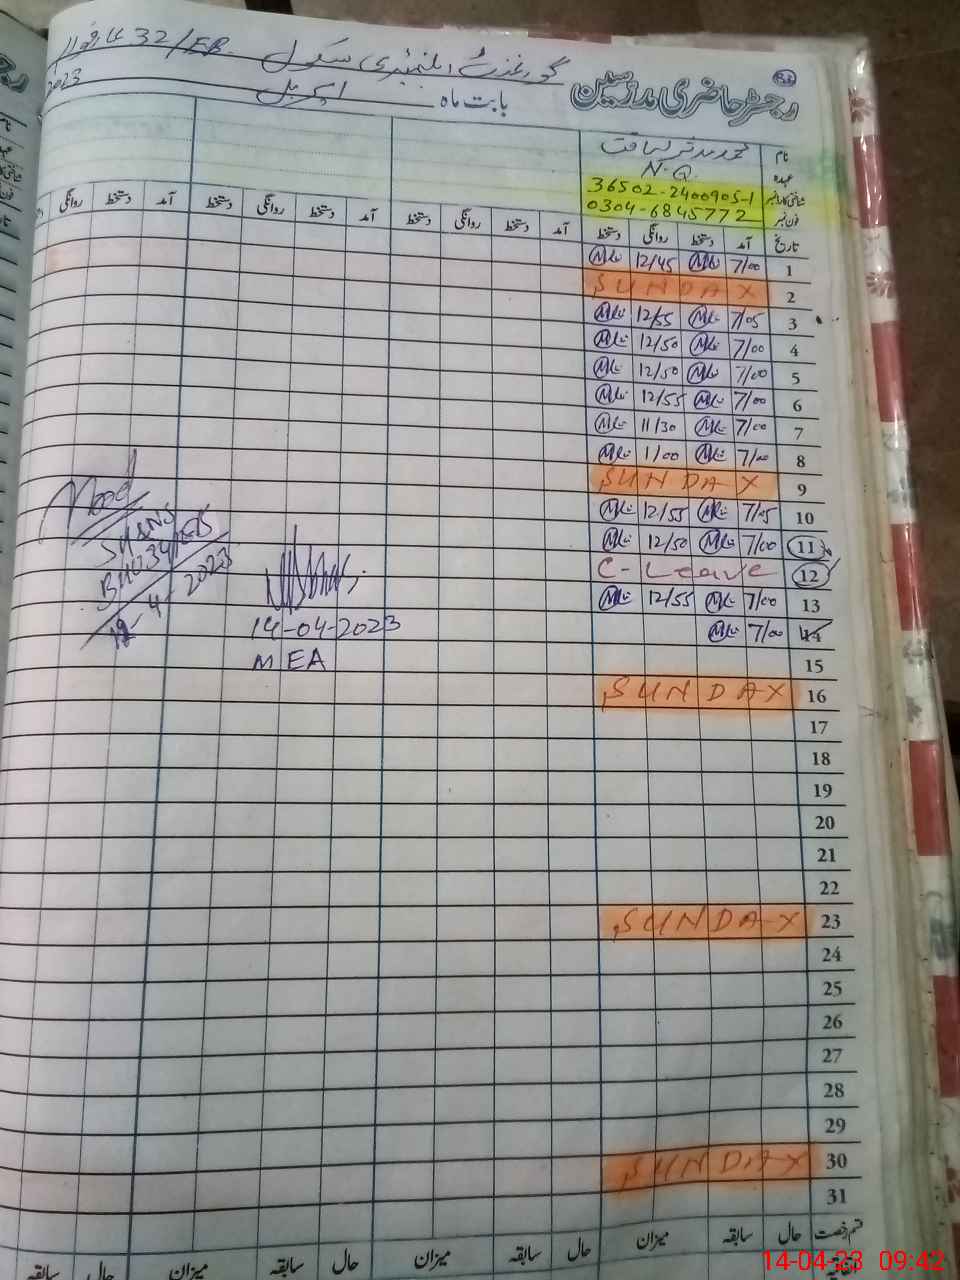 رجسٹر حاضری مدرسین گورنمنٹ ایلیمنٹری سکول 32/EB
بابت ماہ اپریل 2023
نام
عہدہ N.Q
شناختی کارڈ نمبر 36502-2400905-1
فون نمبر 0304-6845772
تاریخ آمد دستخط روانگی دستخط آمد دستخط روانگی دستخط آمد دستخط روانگی دستخط آمد دستخط روانگی
1 7/00 12/45
2 SUNDAY
3 7/05 12/55
4 7/00 12/50
5 7/00 12/50
6 7/00 12/55
7 7/00 11/30
8 7/00 1/00
9 SUNDAY
10 7/05 12/55
11 7/00 12/50
12 C-Leave
13 7/00 12/55
14 7/00
15
16 SUNDAY
17
18
19
20
21
22
23 SUNDAY
24
25
26
27
28
29
30 SUNDAY
31
قسم رخصت حال سابقہ میزان حال سابقہ میزان حال سابقہ میزان حال سابقہ
14-04-2023
MEA
14-04-23 09:42